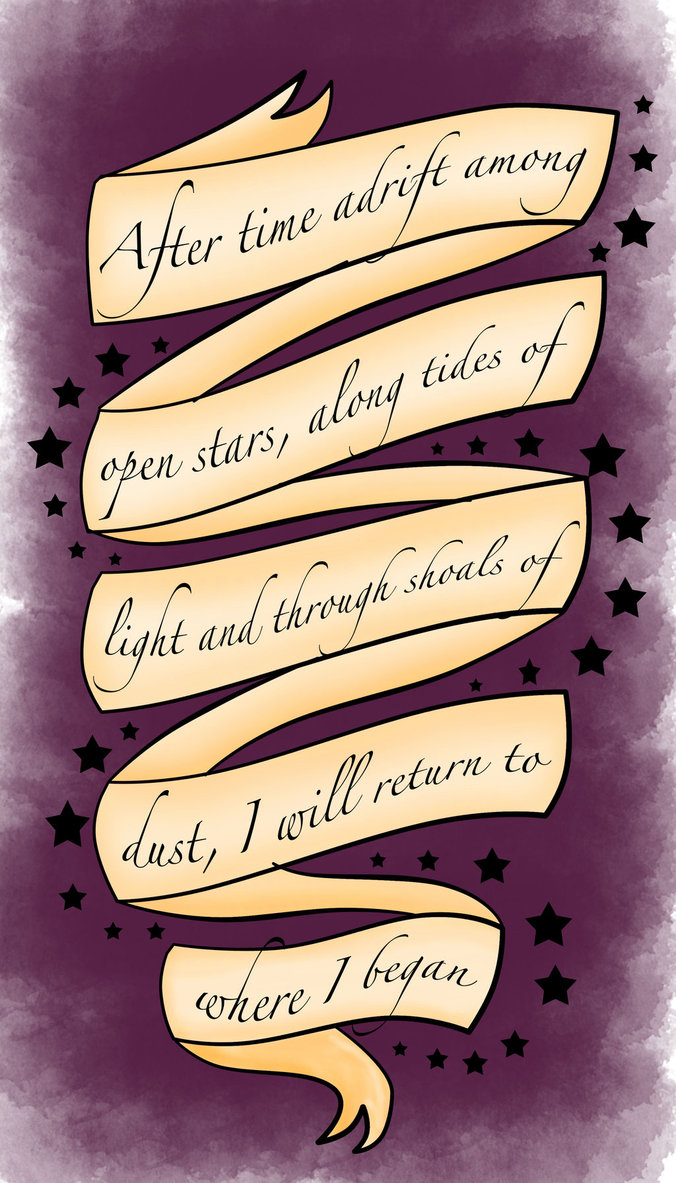 After time adrift among
open stars, along tides of
light and through shoals of
dust, I will return to
where I began